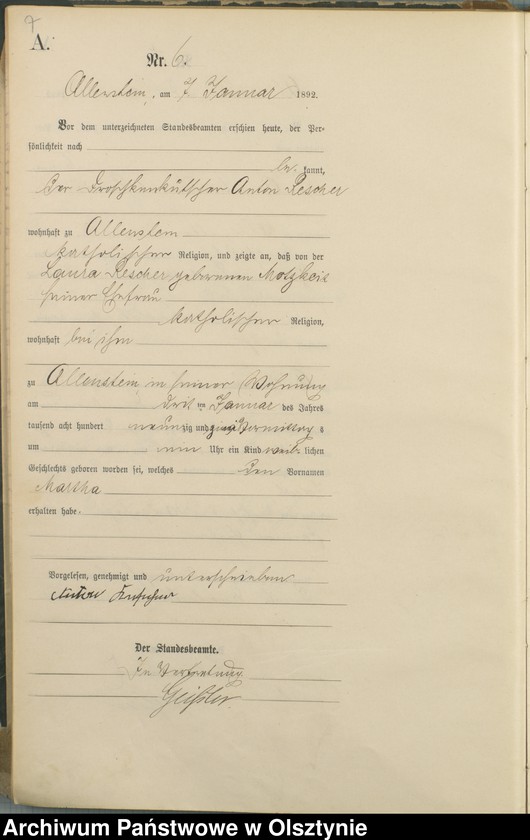 7
A.
Nr. 6
Allenstein, am 7 Januar 1892.
Vor dem unterzeichneten Standesbeamten erschien heute, der Per-
sönlichkeit nach
be kannt,
der Droschkenkutscher Anton Rescher
wohnhaft zu Allenstein
katholischer Religion, und zeigte an, daß von der
Laura Rescher geborenen
seiner Ehefrau
katholischer Religion,
wohnhaft bei ihm
zu Allenstein in seiner Wohnung
am drei ten Januar des Jahres
tausend acht hundert neunzig und zwei Vormittag s
um Uhr ein Kind weib lichen
Geschlechts geboren worden sei, welches den Vornamen
Martha
erhalten habe.
Vorgelesen, genehmigt und unterschrieben
Anton
Der Standesbeamte.
In Vertretung
Geißler
Archiwum Państwowe w Olsztynie